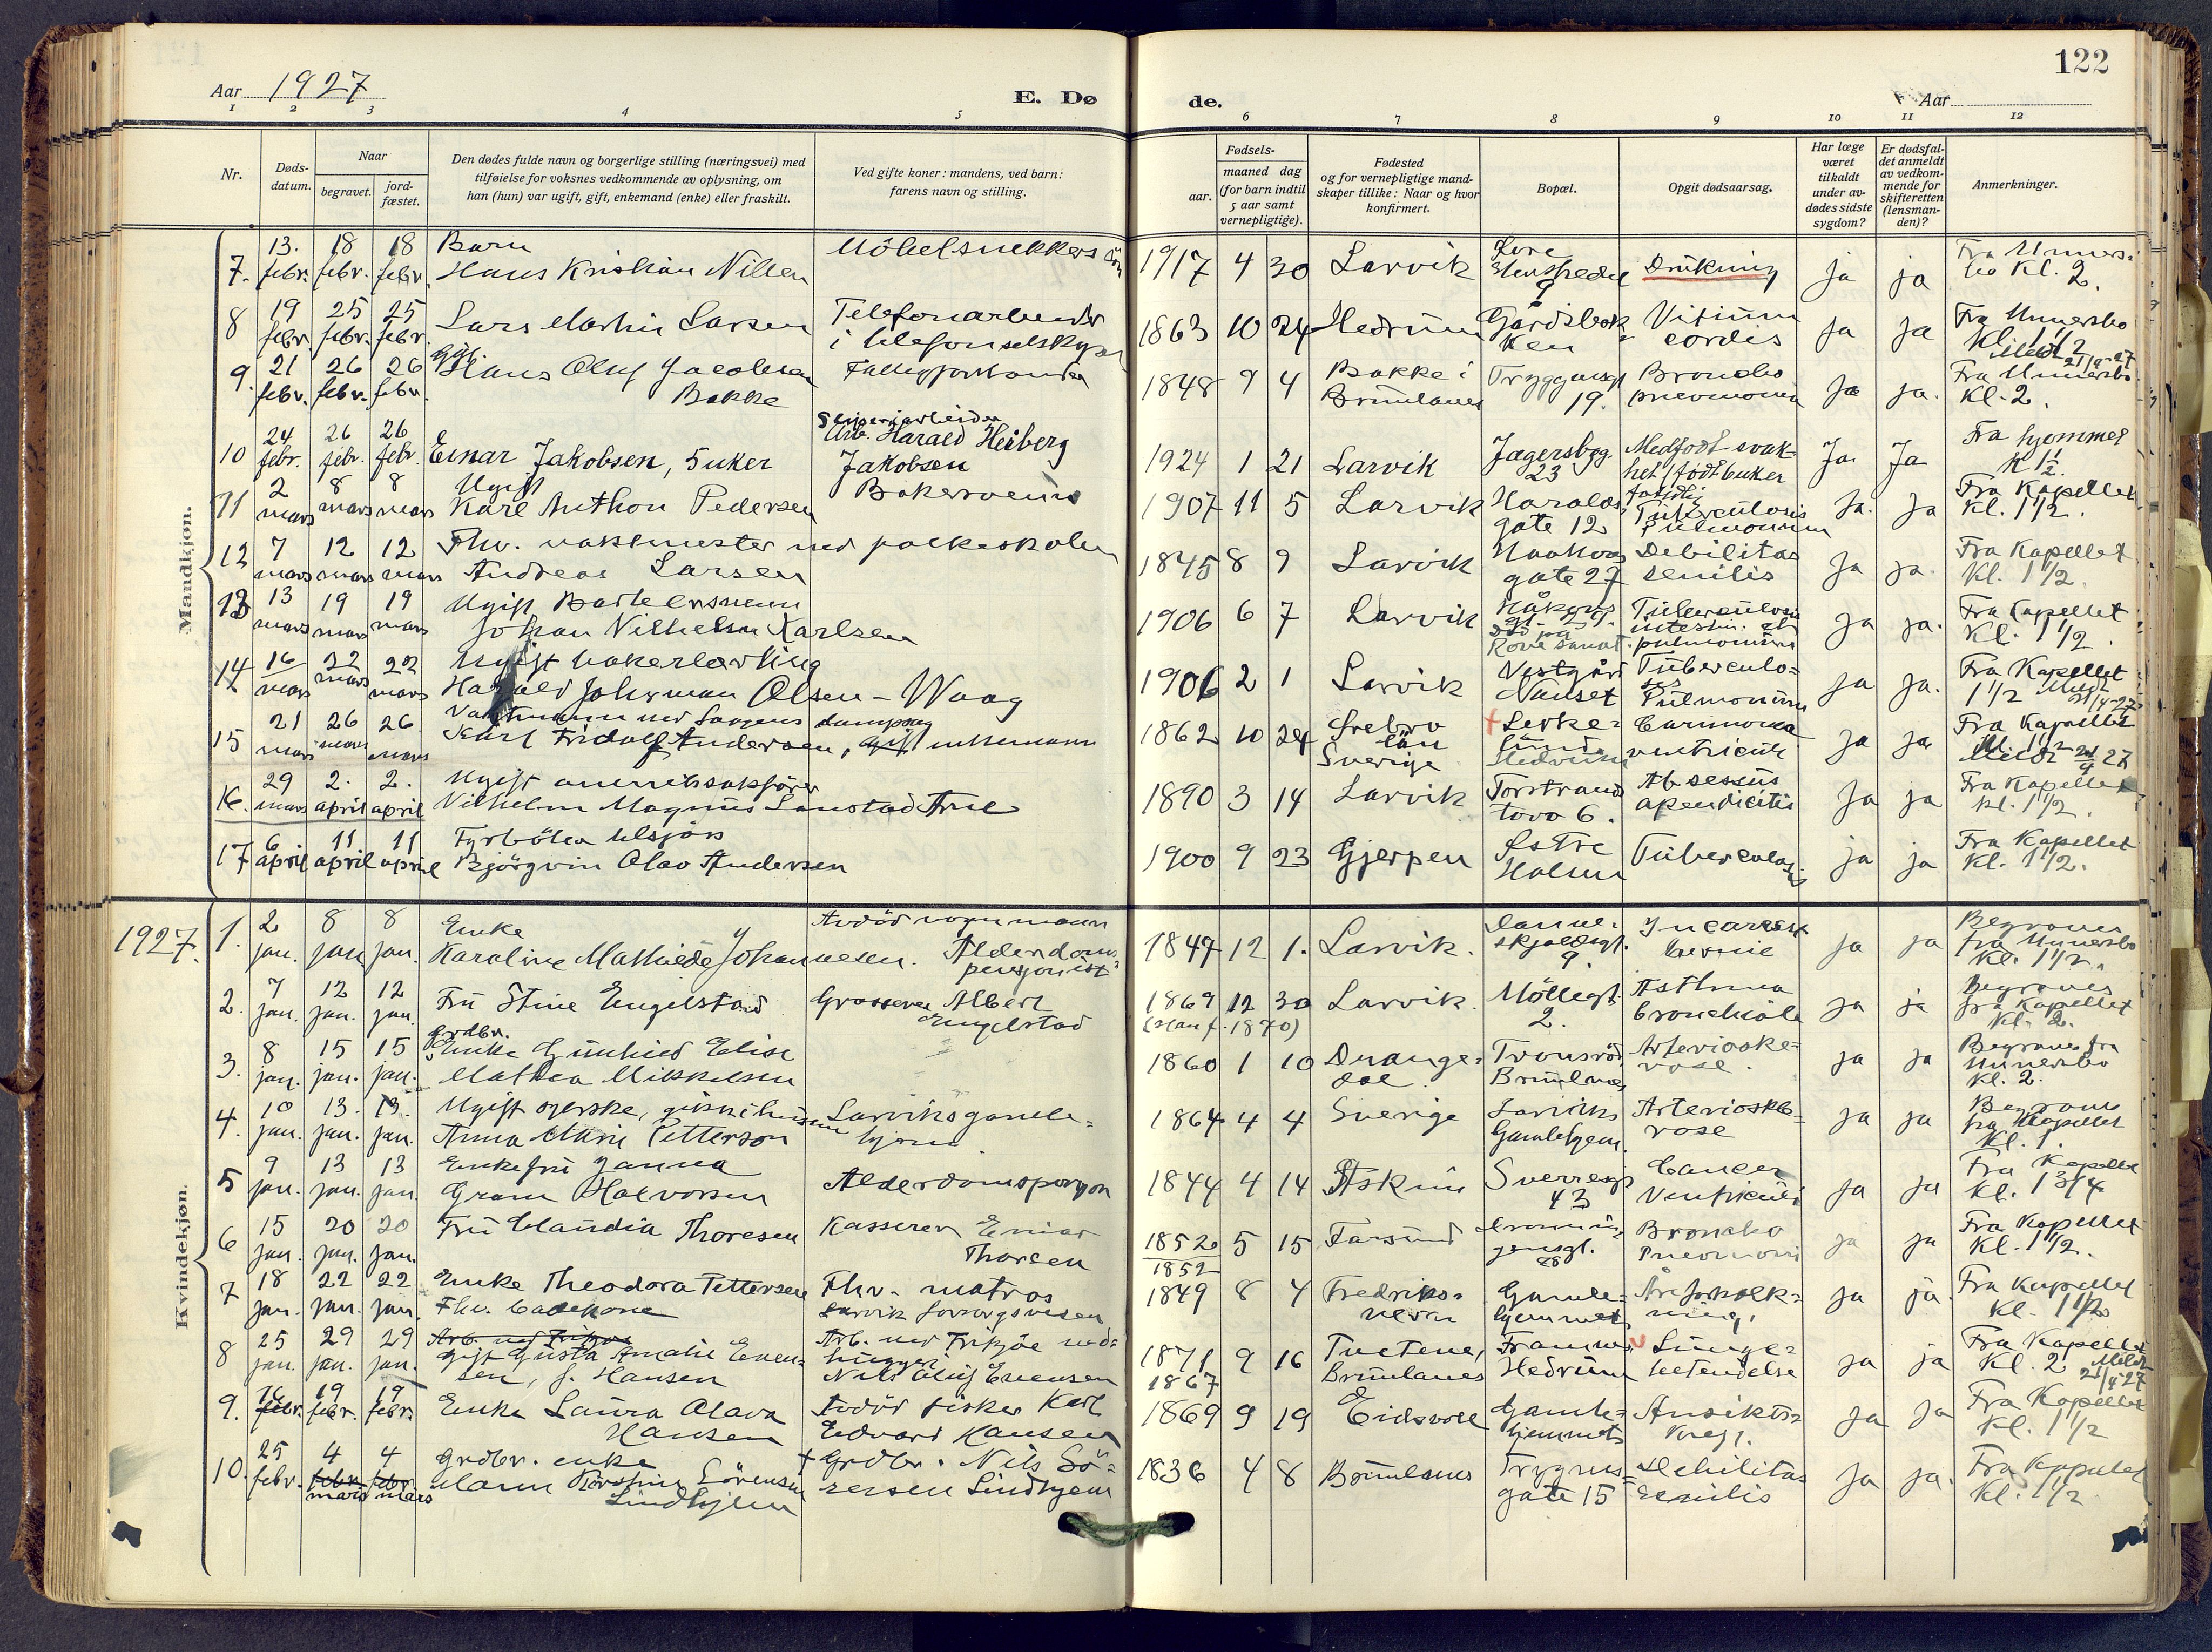 122
Aar 1927
E. Dø
de.
Aar
1 2 3 4 5 6 7 8 9 10 11 12
Nr.
Døds-
datum.
Naar
begravet.
jord-
fæstet.
Den dødes fulde navn og borgerlige stilling (næringsvei) med
tilføielse for voksnes vedkommende av oplysning, om
han (hun) var ugift, gift, enkemand (enke) eller fraskilt.
Ved gifte koner: mandens, ved barn:
farens navn og stilling.
Fødsels-
aar. maaned dag
(for barn indtil
5 aar samt
vernepligtige).
Fødested
og for vernepligtige mand-
skaper tillike: Naar og hvor
konfirmert.
Bopæl.
Opgit dødsaarsag.
Har læge
været
tilkaldt
under av-
dødes sidste
sygdom?
Er dødsfal-
det anmeldt
av vedkom-
mende for
skifteretten
(lensman-
den)?
Anmerkninger.
Mandkjøn.
7. 13. febr. 18 febr. 18 febr. Barn
Hans Kristian Nilsen
Möbelsnekkers sön
1917 4 30 Larvik 9 Drukning ja ja
Kl. 2.
8 19 febr. 25 febr. 25 febr. Lars Martin Larsen
Telefonarbeider
i telefonselskapet
1863 10 24 Hedrum Gårdsbak-
ken
Vitium
cordis
ja ja Fra Unnersbo
Kl. 1 1/2
9. 21 febr. 26 febr. 26 febr. Gift
Hans Oluf Jacobsen
Bakke
Fattigforstander
1848 9 4 Bakke i
Brunlanes
Tryggvesgt
19.
Broncho
pneumoni
ja ja. Meldt 21/4-27
Fra Unnersbo
Kl. 2.
10 24 febr. 26 febr. 26 febr. Einar Jakobsen, 5 uker
Sliperiarbeider
Arb. Harald Heiberg
Jakobsen
1924 1 21 Larvik Jegersbgg.
23
Medfödt svak-
het
Ja Ja Fra hjemmet
K 1 1/2.
11 2 mars 8 mars 8 mars Ugift
Karl Anthon Pedersen
Bakersvenn
1907 11 5 Larvik Haralds
gate 12
Tuberculosis
Pulmonum
Ja. Ja Fra Kapellet
Kl. 1 1/2.
12 7 mars 12 mars 12 mars Fhv. vaktmester ved folkeskolen
Andreas Larsen
1845 8 9 Larvik Haakons
gate 27
Debilitas
senilis
Ja ja. Fra Kapellet
Kl. 1 1/2.
13 13 mars 19 mars 19 mars Ugift
Johan Vilhelm Karlsen
1906 6 7 Larvik Håkons
gt. 29.
Död på
Rove sanat.
Tuberculosis
intestin. et
pulmonum
ja ja. Fra Kapellet
Kl. 1 1/2.
14 16 mars 22 mars 22 mars Ugift bakerlærling
Harald Johrman Olsen - Waag
1906 2 1 Larvik Vestgård
Nanset
Tuberculo-
sis
Pulmonum
ja ja. Fra Kapellet
1 1/2 Meldt
21/4-27
15 21 mars 26 mars 26 mars Vaktmann ved Laagens dampsag
Karl Fridolf Andersen, gift enkemann
1862 10 24 Örebro
län
Sverige
Hedrum
Carcinoma
ventriculi
ja ja Fra Kapellet
Kl. 1 1/2
Meldt 21/4 27
16. 29 mars 2. april 2. april Ugift annensaksförer
Vilhelm Magnus Lanstad Arne
1890 3 14 Larvik Torstrand
tovo 6.
Absessus
apendicitis
Ja ja Fra Kapellet
kl. 1 1/2.
17 6 april 11 april 11 april Fyrböter tilsjös
Björgvin Olav Andersen
1900 9 23 Gjerpen Östre
Halsen
Tuberculosis
ja ja Fra Kapellet
Kl. 1 1/2.
Kvindekjøn.
1927. 1. 2 jan. 8 jan. 8 jan. Enke
Karoline Mathilde Johannesen.
Avdöd vognmann
Alderdoms-
pensjonist
1847 12 1. Larvik. Danne-
skjoldsgt.
9.
Incarcert
hernie
ja ja Begraves
fra Unnersbo
Kl. 1 1/2.
2. 7 jan. 12 jan. 12 jan. Fru Stine Engelstad
Grosserer Albert
Engelstad
1869 12 30
Larvik. Möllegt.
2.
Asthma
bronchiale
ja ja Begraves
fra Kapellet
Kl. 2.
3. 8 jan. 15 jan. 15 jan. Grdbr.
Enke Gunhild Elise
Mathea Mikkelsen
1860 1 10 Drange-
dal.
Brunlanes
Arterioskle-
rose.
ja ja Begraves fra
Unnersbo
kl. 2.
4. 10 jan. 13. jan. 13. jan. Ugift syerske,
Anna Marie Petterson
Larviks gamle-
hjem
1864 4 4 Sverige Larviks
Gamlehjem.
Arterioskle-
rose
ja ja Begraves
fra Kapellet
Kl. 1.
5 9 jan. 13 jan. 13 jan. Enkefru Janna
Gram Halvorsen
Alderdomspensjon
1844 4 14 Askim Sverresgt
43
Cancer
Ventriculi
ja ja Fra Kapellet
Kl. 1 3/4
6 15 jan. 20 jan. 20 jan. Fru Claudia Thoresen
Kasserer Einar
Thoresen
1852 5 15
1852
Farsund
Broncho
Pneumoni
ja ja Fra Kapellet
Kl. 1 1/2.
7 18 jan. 22 jan. 22 jan. Enke Theodora Pettersen
Fhv. badekone
Fhv. matros
Larvik forsorgsvesen
1849 8 4 Fredriks-
vern
Gamle-
hjemmet
Åreforkalk-
ning.
ja ja Fra Kapellet
kl. 1 1/2
8 25 jan. 29 jan. 29 jan. Arb. ved Fritzöe
gift Gusta Amalie Even-
sen, f. Hansen
Arb. ved Fritzöe ved-
huggeri
Nils Oluf Evensen
1871 9 16
1867
Brunlanes
Hedrum
Lunge-
betendelse
ja ja Fra Kapellet
Kl. 2 Meldt
21/4-27
9. 16 febr. 19 febr. 19 febr. Enke Laura Olava
Hansen
Avdöd fisker Karl
Edvard Hansen
1869 9 19 Eidsvoll Gamle-
hjemmet
Ansikts-
Ja Ja Fra Kapellet
Kl. 1 1/2
10. 25 febr. 4 febr. mars 4 febr. mars Grdbr. enke
Maren Sörensen
Lindhjem
† Grdbr. Nils Sö-
rensen Lindhjem
1836 4 8 Brunlanes Trygves-
gate 15
Debilitas
Senilis
Ja ja. Fra Kapellet
Kl. 1 1/2